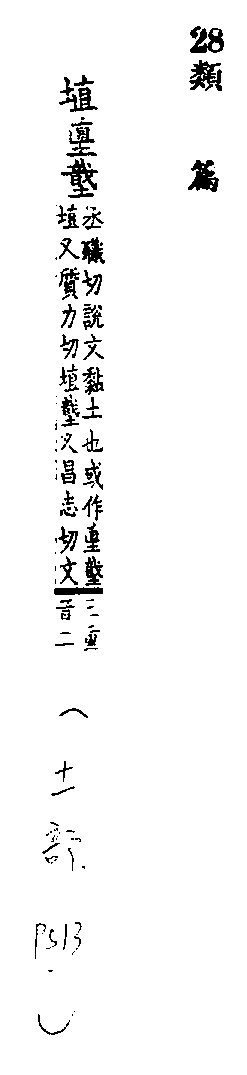 28
類篇
埴𡍴戠土
丞職切說文黏土也或作𡍴戠土
埴又質力切埴戠土又昌志切文
三重
音二
(土部. P513.)